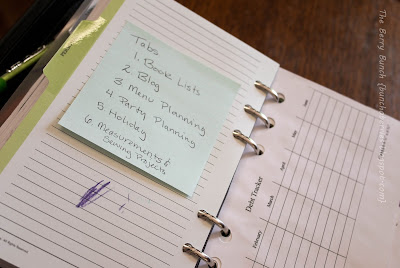 Tabs
1. Book Lists
2. Blog
3 Menu Planning
4 Party Planning
5 Holiday
6 Measurements &
Sewing Projects
Debt Tracker
February
March
April
May
All Rights Reserved
The Berry Bunch